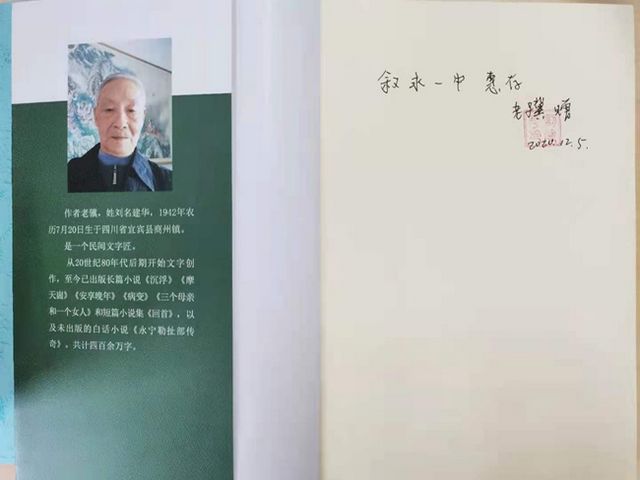 作者老骥，姓刘名建华，1942年农
历7月20日生于四川省宜宾县商州镇。
是一个民间文字匠。
从20世纪80年代后期开始文字创
作，至今已出版长篇小说《沉浮》《摩
天崖》《安享晚年》《病变》《三个母亲
和一个女人》和短篇小说集《回首》，以
及未出版的白话小说《永宁勒扯部传
奇》。共计四百余万字。
叙永一中 惠存
老骥 赠
2020.12.5.